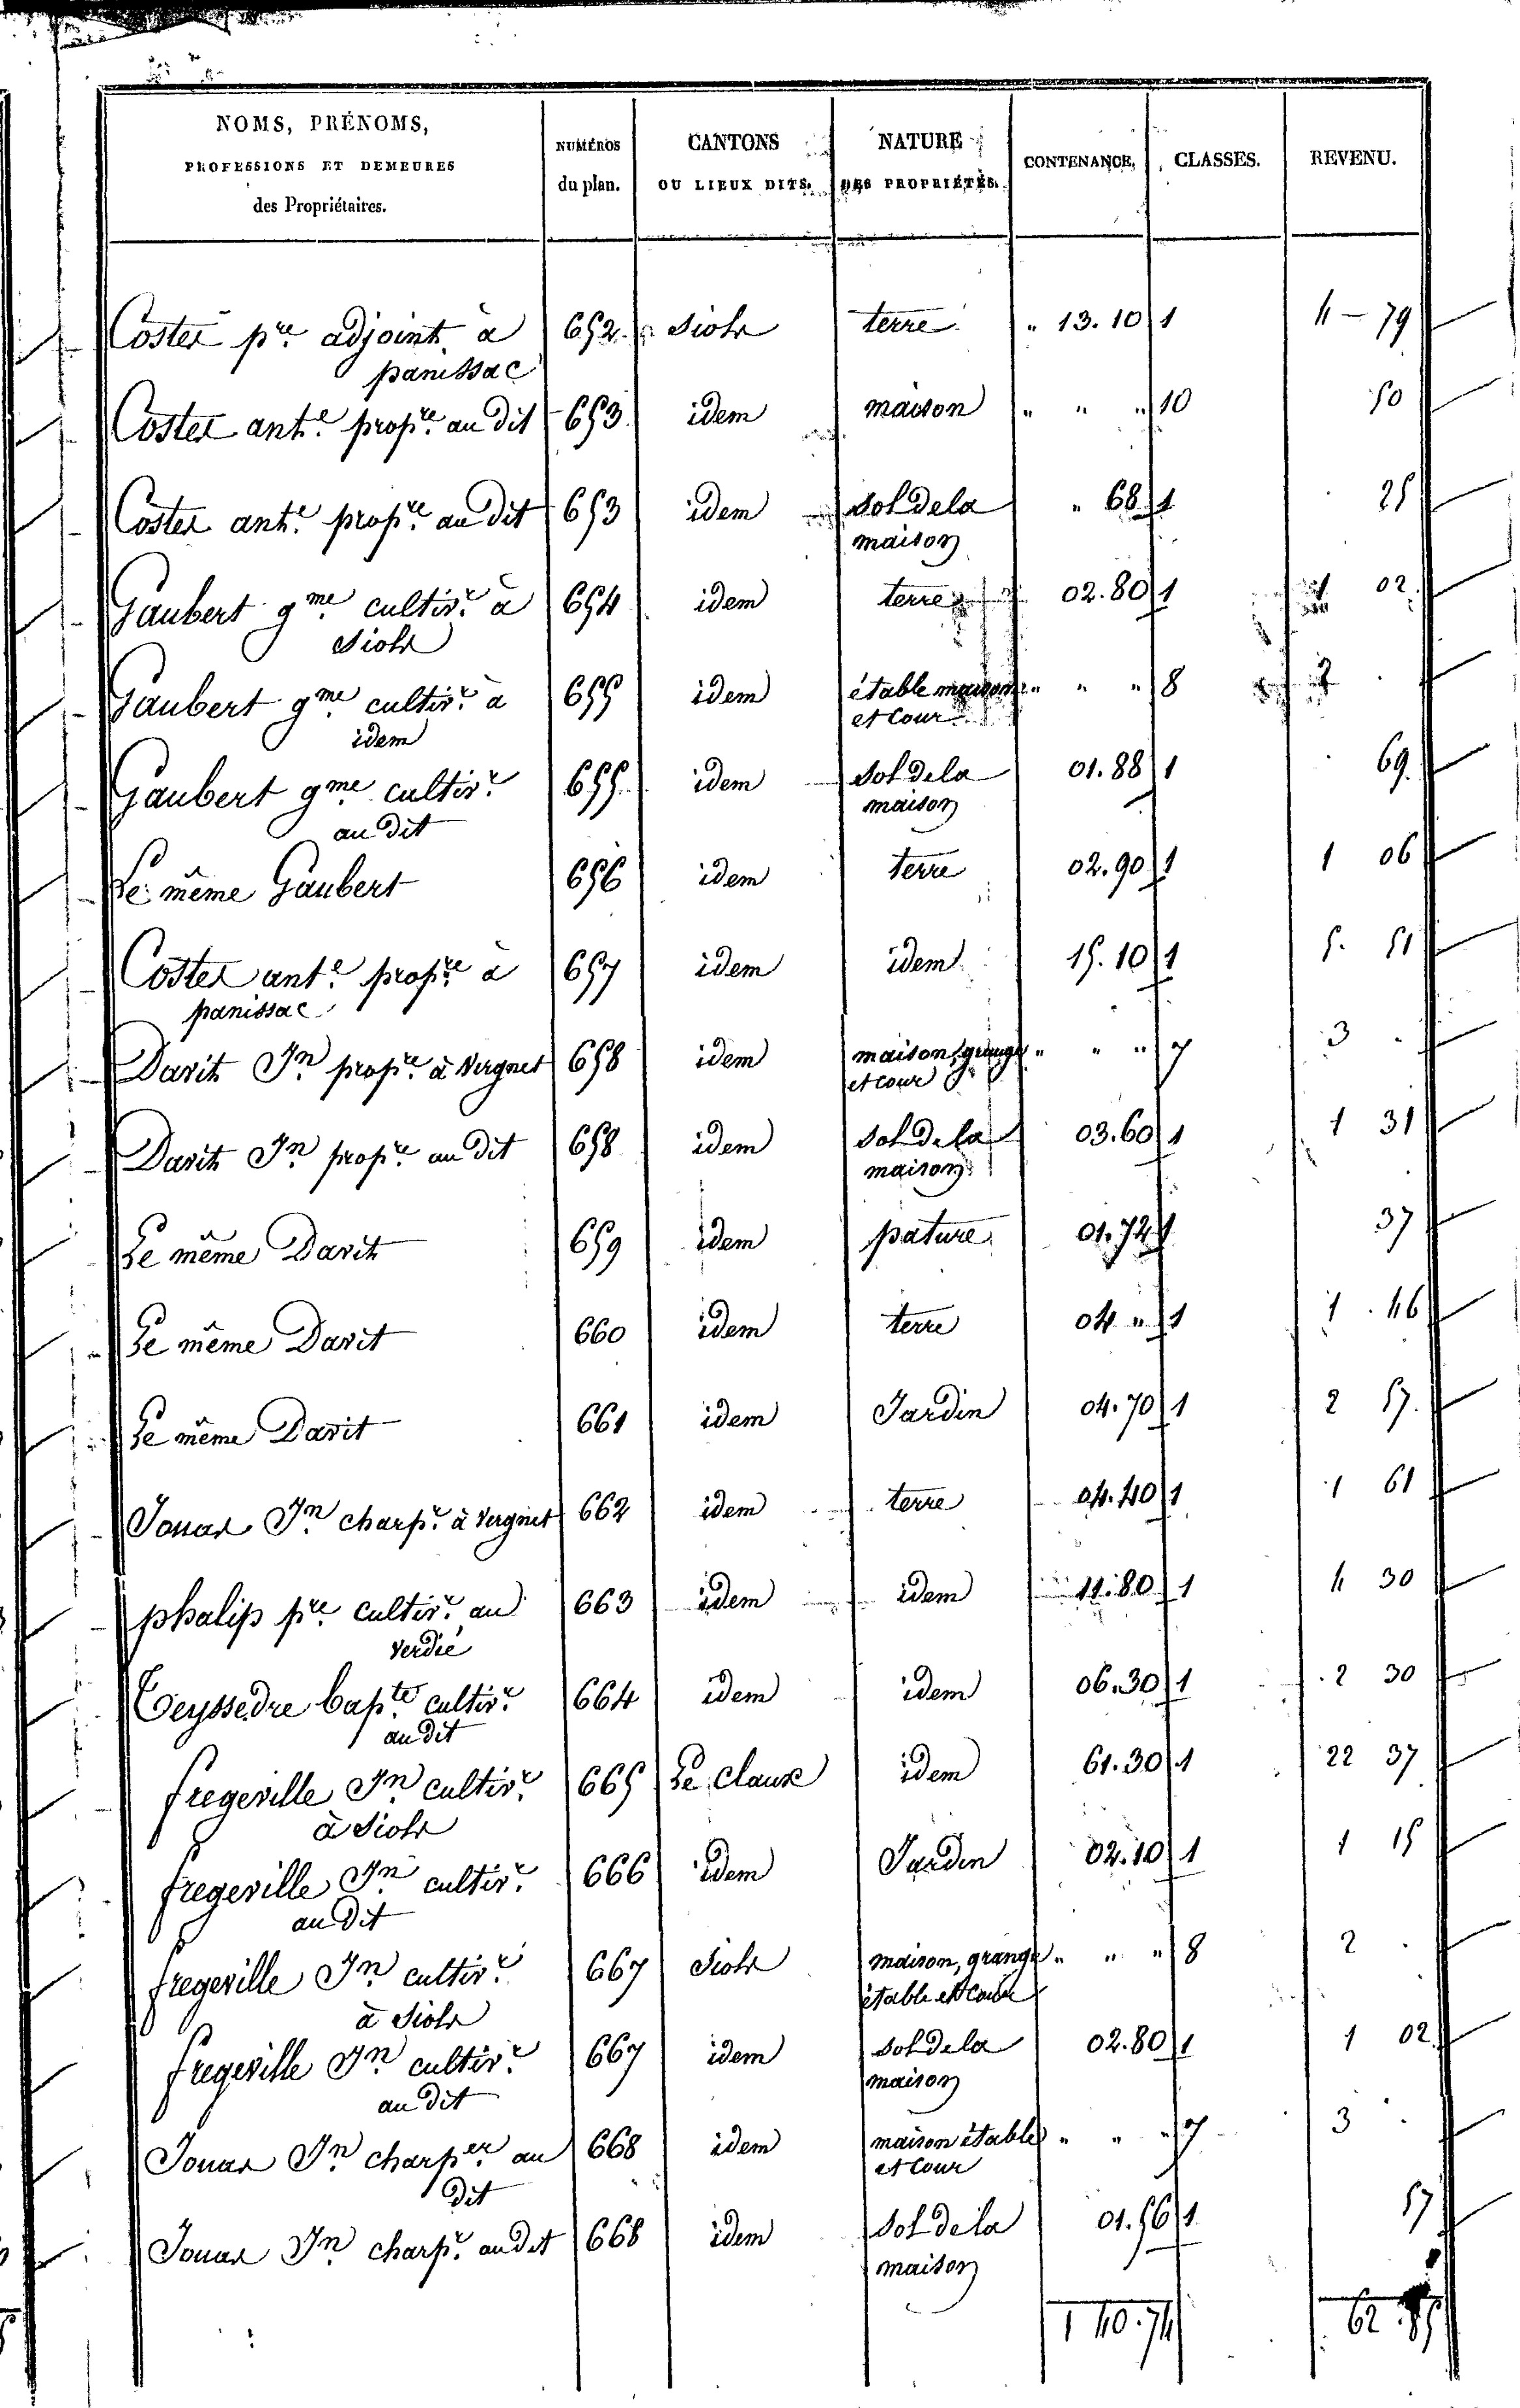 NOMS, PRÉNOMS, PROFESSIONS ET DEMEURES des Propriétaires. NUMÉROS du plan. CANTONS OU LIEUX DITS. NATURE DES PROPRIÉTÉS. CONTENANCE. CLASSES. REVENU.
Costes pre. adjoint à 652 Siols terre " 13.10 1 4 - 79
panissac
Costes ante. propre. au dit 653 idem maison " " " 10 50
Costes ante. propre. au dit 653 idem sol de la " 68 1 25
maison
Gaubert gme cultivr. à 654 idem terre 02.80 1 1 02
Siols
Gaubert gme cultivr. à 655 idem étable maison " " " 8 2 .
idem et Cour
Gaubert gme cultivr. 655 idem sol de la 01.88 1 69
au dit maison
Le même Gaubert 656 idem terre 02.90 1 1 06
Costes ante. propre. à 657 idem idem 15.10 1 5. 51
panissac
Davit Jn propre. à Vergnet 658 idem maison, grange " " " 7 3 .
et cour
Davit Jn propre. au dit 658 idem sol de la 03.60 1 1 31
maison
Le même Davit 659 idem pature 01.72 1 37
Le même Davit 660 idem terre 04 " 1 1 . 46
Le même Davit 661 idem Jardin 04.70 1 2 57
Jouas Jn charpr. à Vergnet 662 idem terre 04.40 1 1 61
phalip pre. cultivr. au 663 idem idem 11.80 1 4 30
verdié
Teyssedre bapte cultivr. 664 idem idem 06.30 1 2 30
au dit
fregeville Jn cultivr. 665 Le claux idem 61.30 1 22 37
à Siols
fregeville Jn cultivr. 666 idem Jardin 02.10 1 1 15
au dit
fregeville Jn cultivr. 667 Siols maison, grange " " " 8 2 .
à Siols étable et Cour
fregeville Jn cultivr. 667 idem sol de la 02.80 1 1 02
au dit maison
Jouas Jn charper. au 668 idem maison étable " " " 7 3 .
dit et Cour
Jouas Jn charpr. au dit 668 idem sol de la 01.56 1 57
maison
1 40.74 62.85